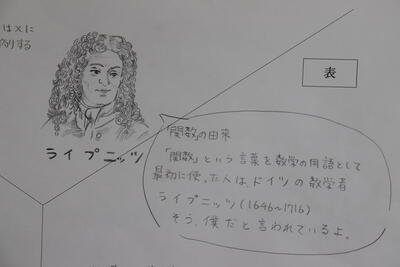 はxに
例する
表
ライプニッツ
「関数」の由来
「関数」という言葉を数学の用語として
最初に使った人は、ドイツの数学者
ライプニッツ(1646～1716)
そう、僕だと言われているよ。